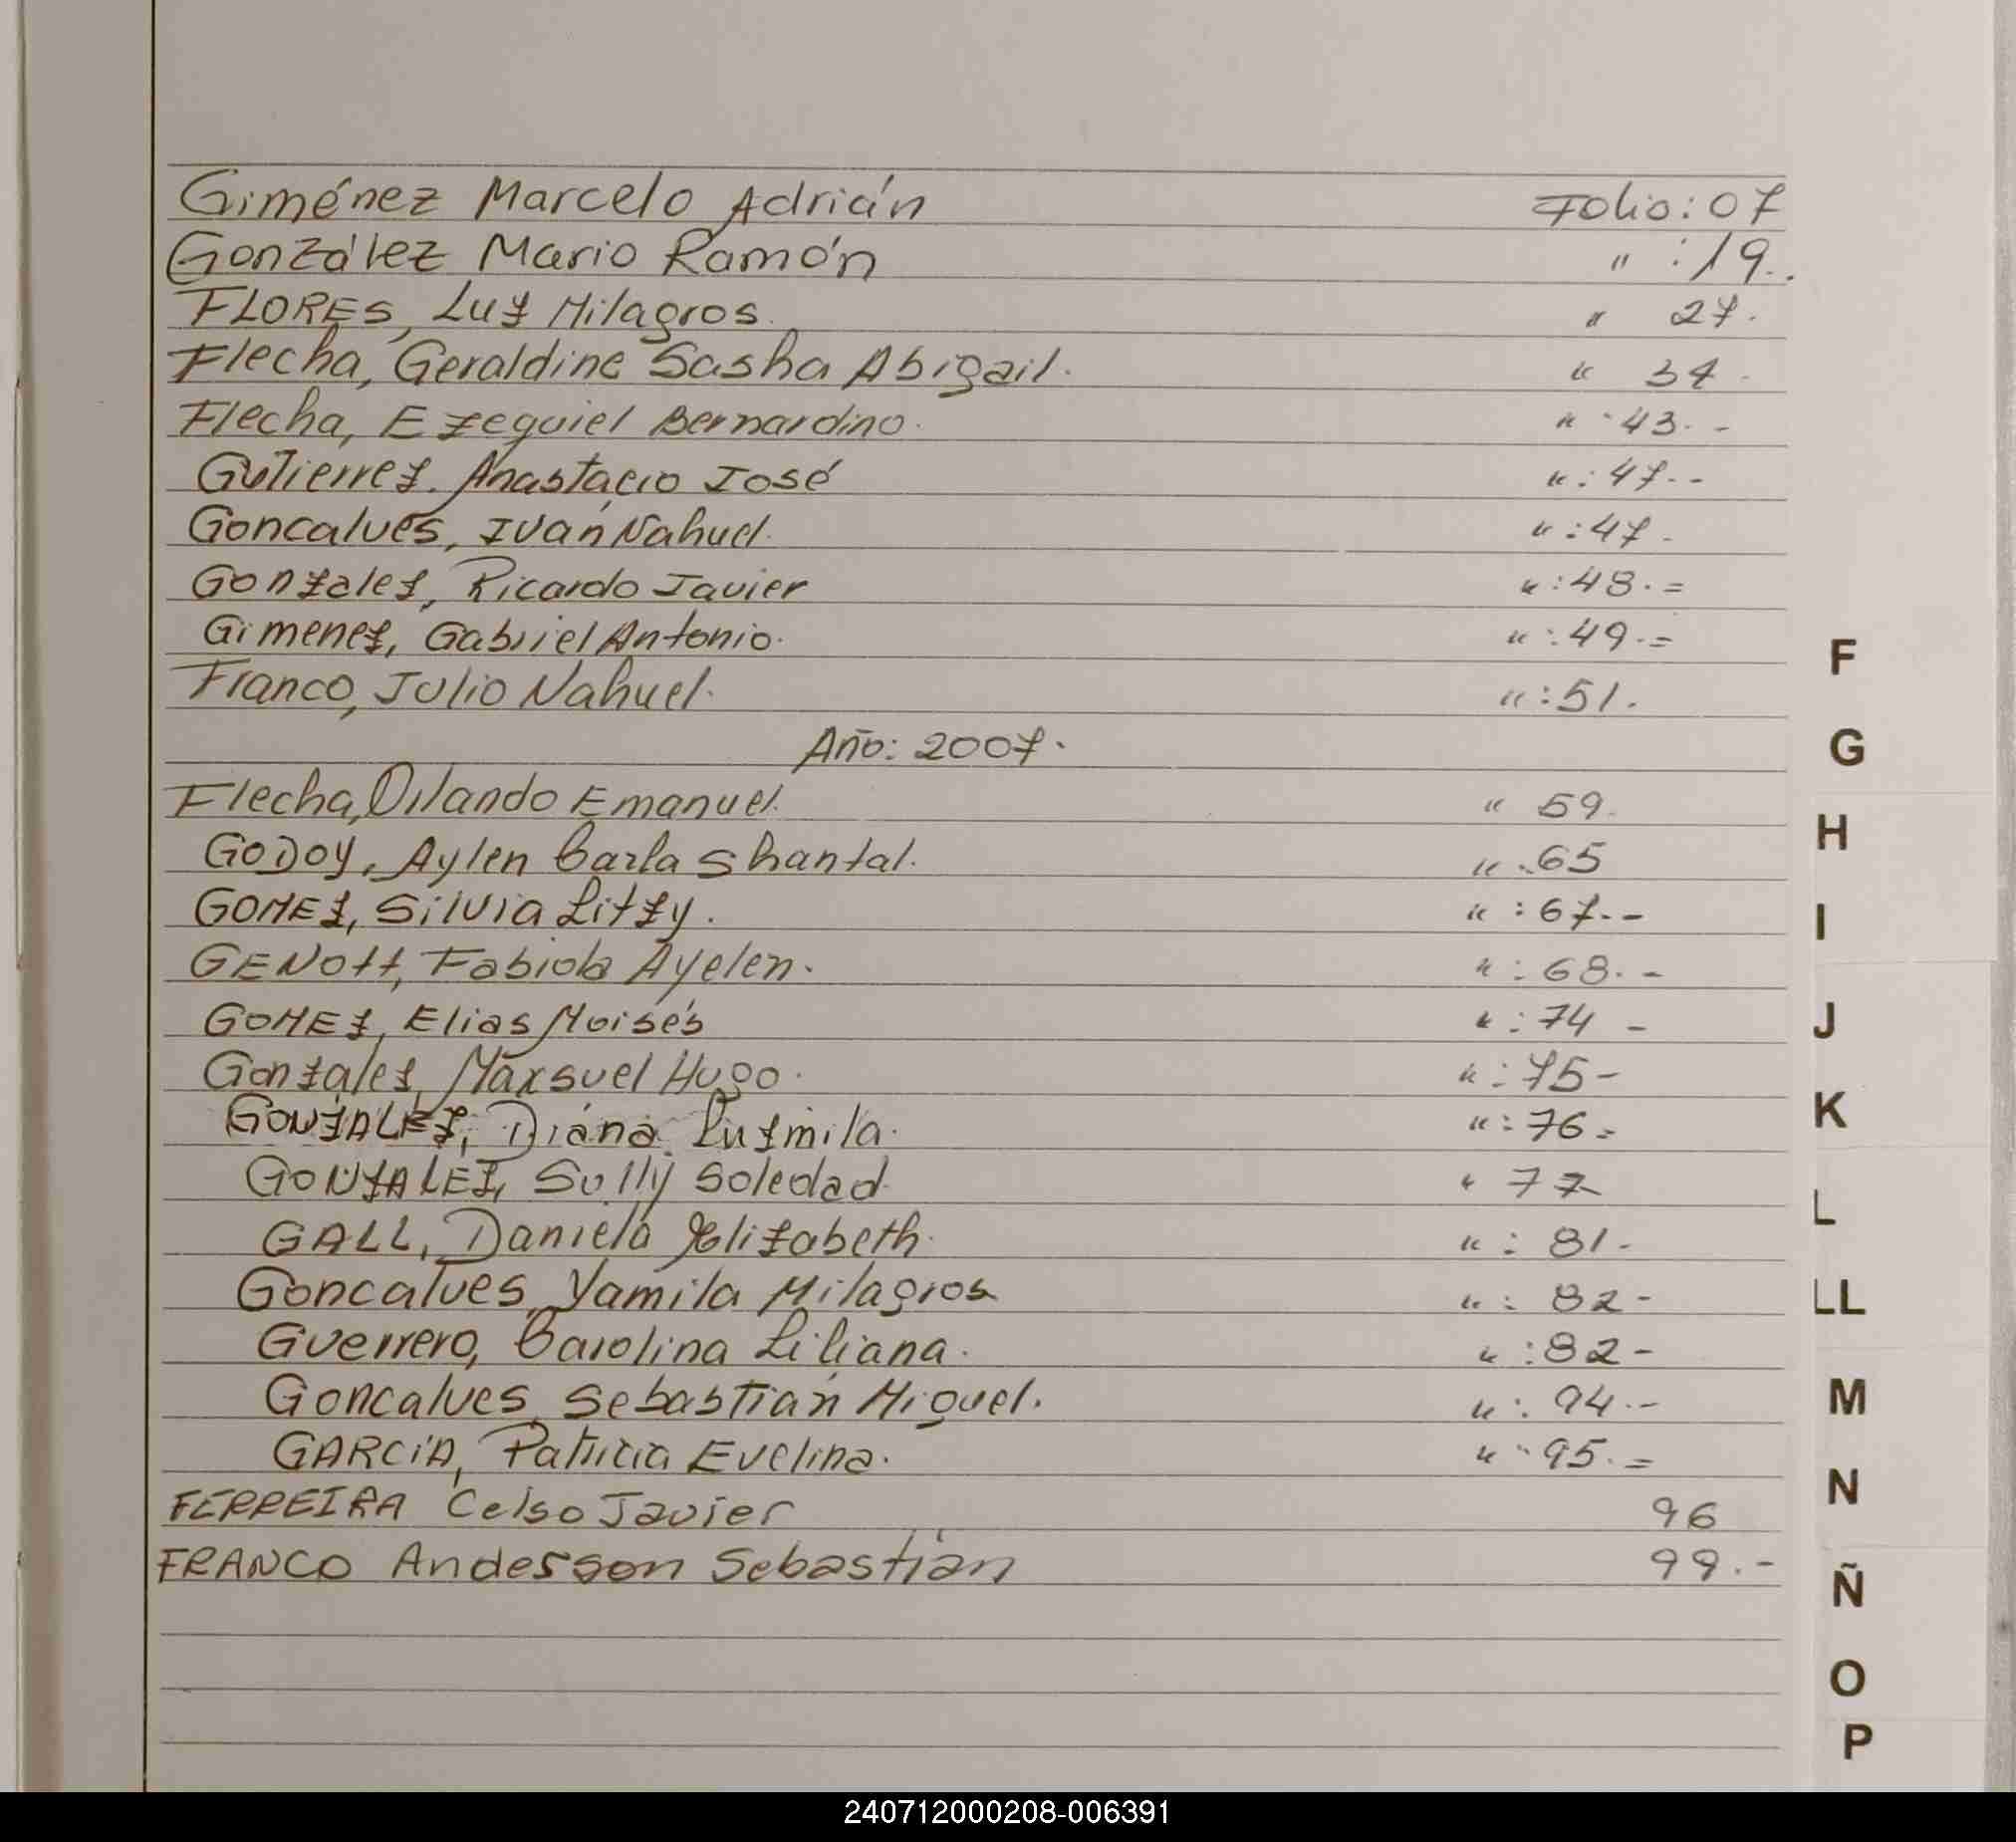 Giménez Marcelo Adrián Folio: 07
González Mario Ramón " : 19..
FLORES, Luz Milagros. " 27.
Flecha, Geraldine Sasha Abigail. " 34 -
Flecha, Ezequiel Bernardino. " : 43. -
Gutierrez. Anastacio José " : 47. - -
Goncalves, Iván Nahuel. " : 47. -
Gonzalez, Ricardo Javier " : 48. =
Gimenez, Gabriel Antonio. " : 49. =
Franco, Julio Nahuel. " : 51.
Año: 2007.
Flecha, Orlando Emanuel. " 59.
GODOY, Aylen Carla Shantal. " : 65
GOMEZ, Silvia Litzy. " : 67. - -
GENOtt, Fabiola Ayelen. " : 68. -
GOMEZ, Elias Moisés " : 74 -
Gonzalez, Maxsuel Hugo. " : 75 -
GONZALEZ, Diana Luzmila. " : 76 =
GONZALEZ, Sully Soledad. " 77
GALL, Daniela Elizabeth. " : 81 -
Goncalves, Yamila Milagros " : 82 -
Guerrero, Carolina Liliana. " : 82 -
Goncalves, Sebastian Miguel. " : 94. -
GARCIA, Patricia Evelina. " : 95. =
FERREIRA Celso Javier 96
FRANCO Andersson Sebastián 99. -
F
G
H
I
J
K
L
LL
M
N
Ñ
O
P
240712000208-006391